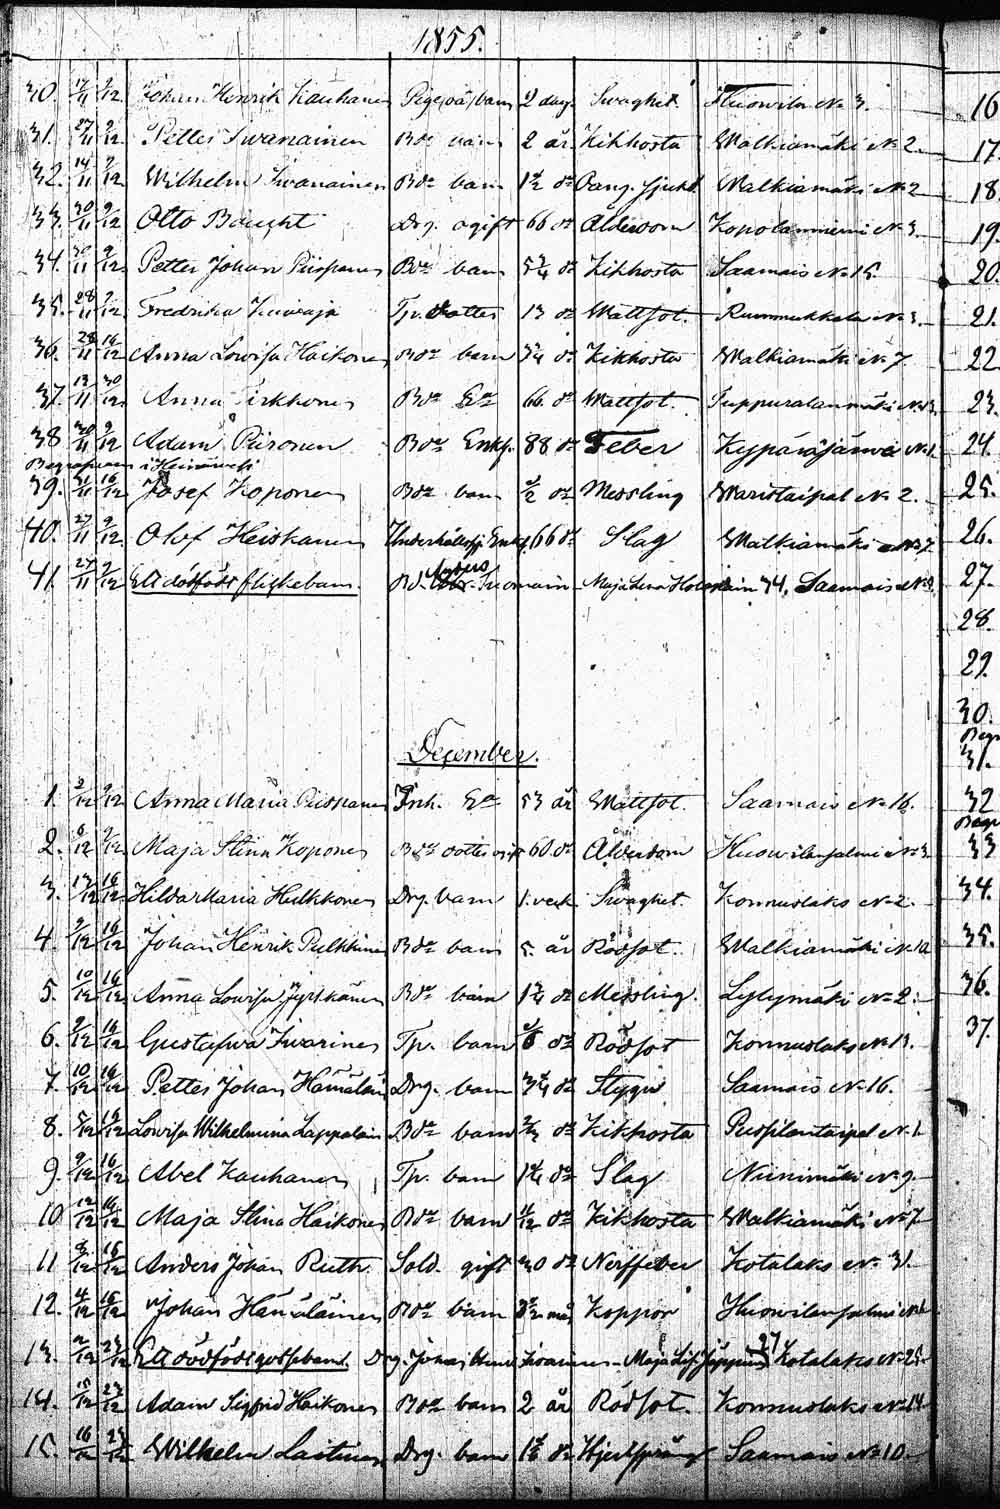 1855.
30. 17/11 9/12 Johan Henrik Kauhanen Piges oä/barn 2 dag. Swaghet Huowila No 3. 16
31. 27/11 9/12 Petter Iwanainen Bde barn 2 år Kikhosta Walkiamäki No 2. 17.
32. 14/11 9/12 Wilhelm Iwanainen Bde barn 1 1/2 de Pang. sjukd. Walkiamäki No 2 18.
33. 30/11 9/12 Otto Baucht Drg. ogift 66 de Ålderdom Kopolanniemi No 3. 19.
34. 9/12 Petter Johan Piispanen Bde barn de Kikhosta Saamais No 15. 20.
35. 28/11 9/12 Fredrika Kuivaja Tp. dotter 13 de Wattsot. Rummukkala No 3. 21.
36. 28/11 16/12 Anna Lowisa Haikonen Bde barn 3/4 de Kikhosta Walkiamäki No 7. 22
37. 13/11 30/12 Anna Pirkkonen Bde Ea 66 de Wattsot. Tuppuralanmäki No 13. 23.
38 30/11 9/12 Adam Piironen Bde Enkl. 88 de Feber Kypäräjärwi No 1. 24.
Begrafwen i Heinäwesi
39. 16/12 Josef Koponen Bde barn 1/2 de Messling Waristaipal No 2. 25.
40. 27/11 9/12 Olof Heiskanen Underhållsj. Enkl. 66 de Slag Walkiamäki No 7. 26.
41. 27/11 9/12 Ett dödfödt flickebarn. Bd. Suomain - Maja Lena 34, Saamais No 9. 27.
28.
29.
30.
Begr
31.
December.
1. 2/12 9/12 Anna Maria Piispanen Inh. Ea 53 år Wattsot. Saamais No 16. 32
Begr
2. 6/12 9/12 Maja Stina Koponen Bde dotter ogift 60 de Ålderdom Huowilanjalmi No 3. 33
3. 13/12 16/12 Hilda Maria Hulkkonen Drg. barn 1. veck Swaghet. Konnuslaks No 2. 34.
4. 9/12 16/12 Johan Henrik Pulkkinen Bde barn 5. år Rödsot. Walkiamäki No 10 35.
5. 10/12 16/12 Anna Lowisa Jyrkänen Bde barn 1 3/4 de Messling. Lylymäki No 2. 36.
6. 9/12 16/12 Gustafwa Iwarinen Tp. barn de Rödsot Konnuslaks No 13. 37.
7. 10/12 16/12 Petter Johan Hämäläin Drg. barn 3/4 de Slygn Saamais No 16.
8. 5/12 16/12 Lowisa Wilhelmina Lappalain Bde barn de Kikhosta No 1.
9. 9/12 16/12 Abel Kauhanen Tp. barn de Slag Niinimäki No 9.
10 12/12 16/12 Maja Stina Haikonen Bde barn de Kikhosta Walkiamäki No 7
11 8/12 16/12 Anders Johan Ruth. Sold. gift 30 de Nerffeber Kotalaks No 31.
12. 4/12 16/12 Johan Hämäläinen Bde barn mån Koppor Huowilanjalmi
13. 9/12 23/12 Ett dödfödt gossebarn. Drg. Johan Iwarinen - Maja Lis. 27 Kotalaks No 25.
14. 15/12 23/12 Adam Sigfrid Haikonen Bde barn 2 år Rödsot. Konnuslaks No 14
15. 16/12 23/12 Wilhelm Laitinen Drg. barn de Hjertsprång Saamais No 10.